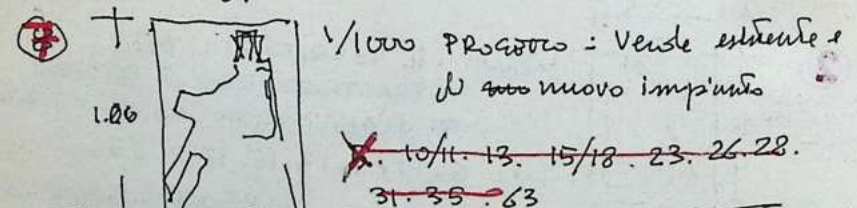 1/1000 PROGETTO = Verde esistente e
di nuovo impianto
1.06
10/11. 13. 15/18. 23. 26. 28.
31. 35. 63